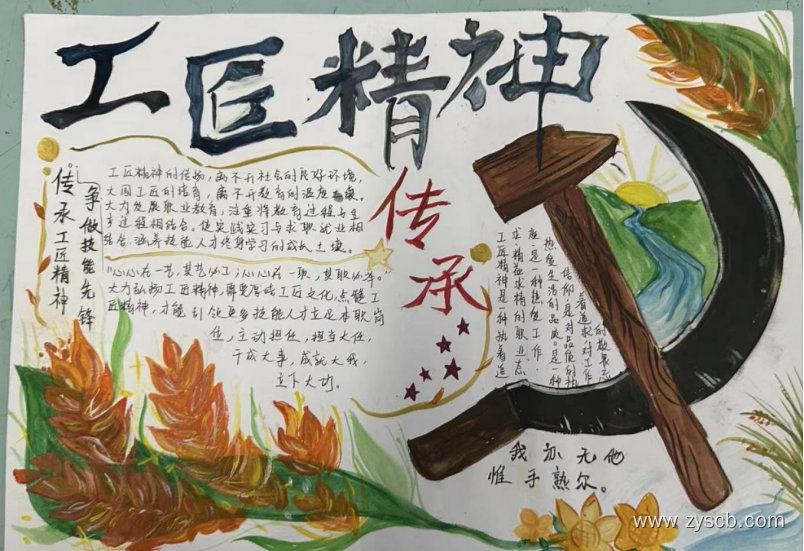 工匠精神
传承
传承工匠精神
争做技能先锋
工匠精神的传扬,离不开社会的良好环境,
大国工匠的培育,离不开教育的温度
大力发展职业教育,注重将教育过程与生
产过程相结合。使实践实习与求职就业相
结合,涵养技能人才终身学习的成长土壤。
“心心在一艺,其艺必工;心心在一职,其职必举。”
大力弘扬工匠精神,厚植工匠文化,点燃工
匠精神,才能引领更多技能人才立足本职岗
位,主动担任,担当大任,
干成大事,成就大我,
立下大功。
工匠精神是一种执着追
求,精益求精的职业态
度,是一种热爱工作,
热爱生活的品质。是一种
信仰,是对品质的
着追求,对工作
的敬畏
我亦无他
惟手熟尔。
www.zyscb.com